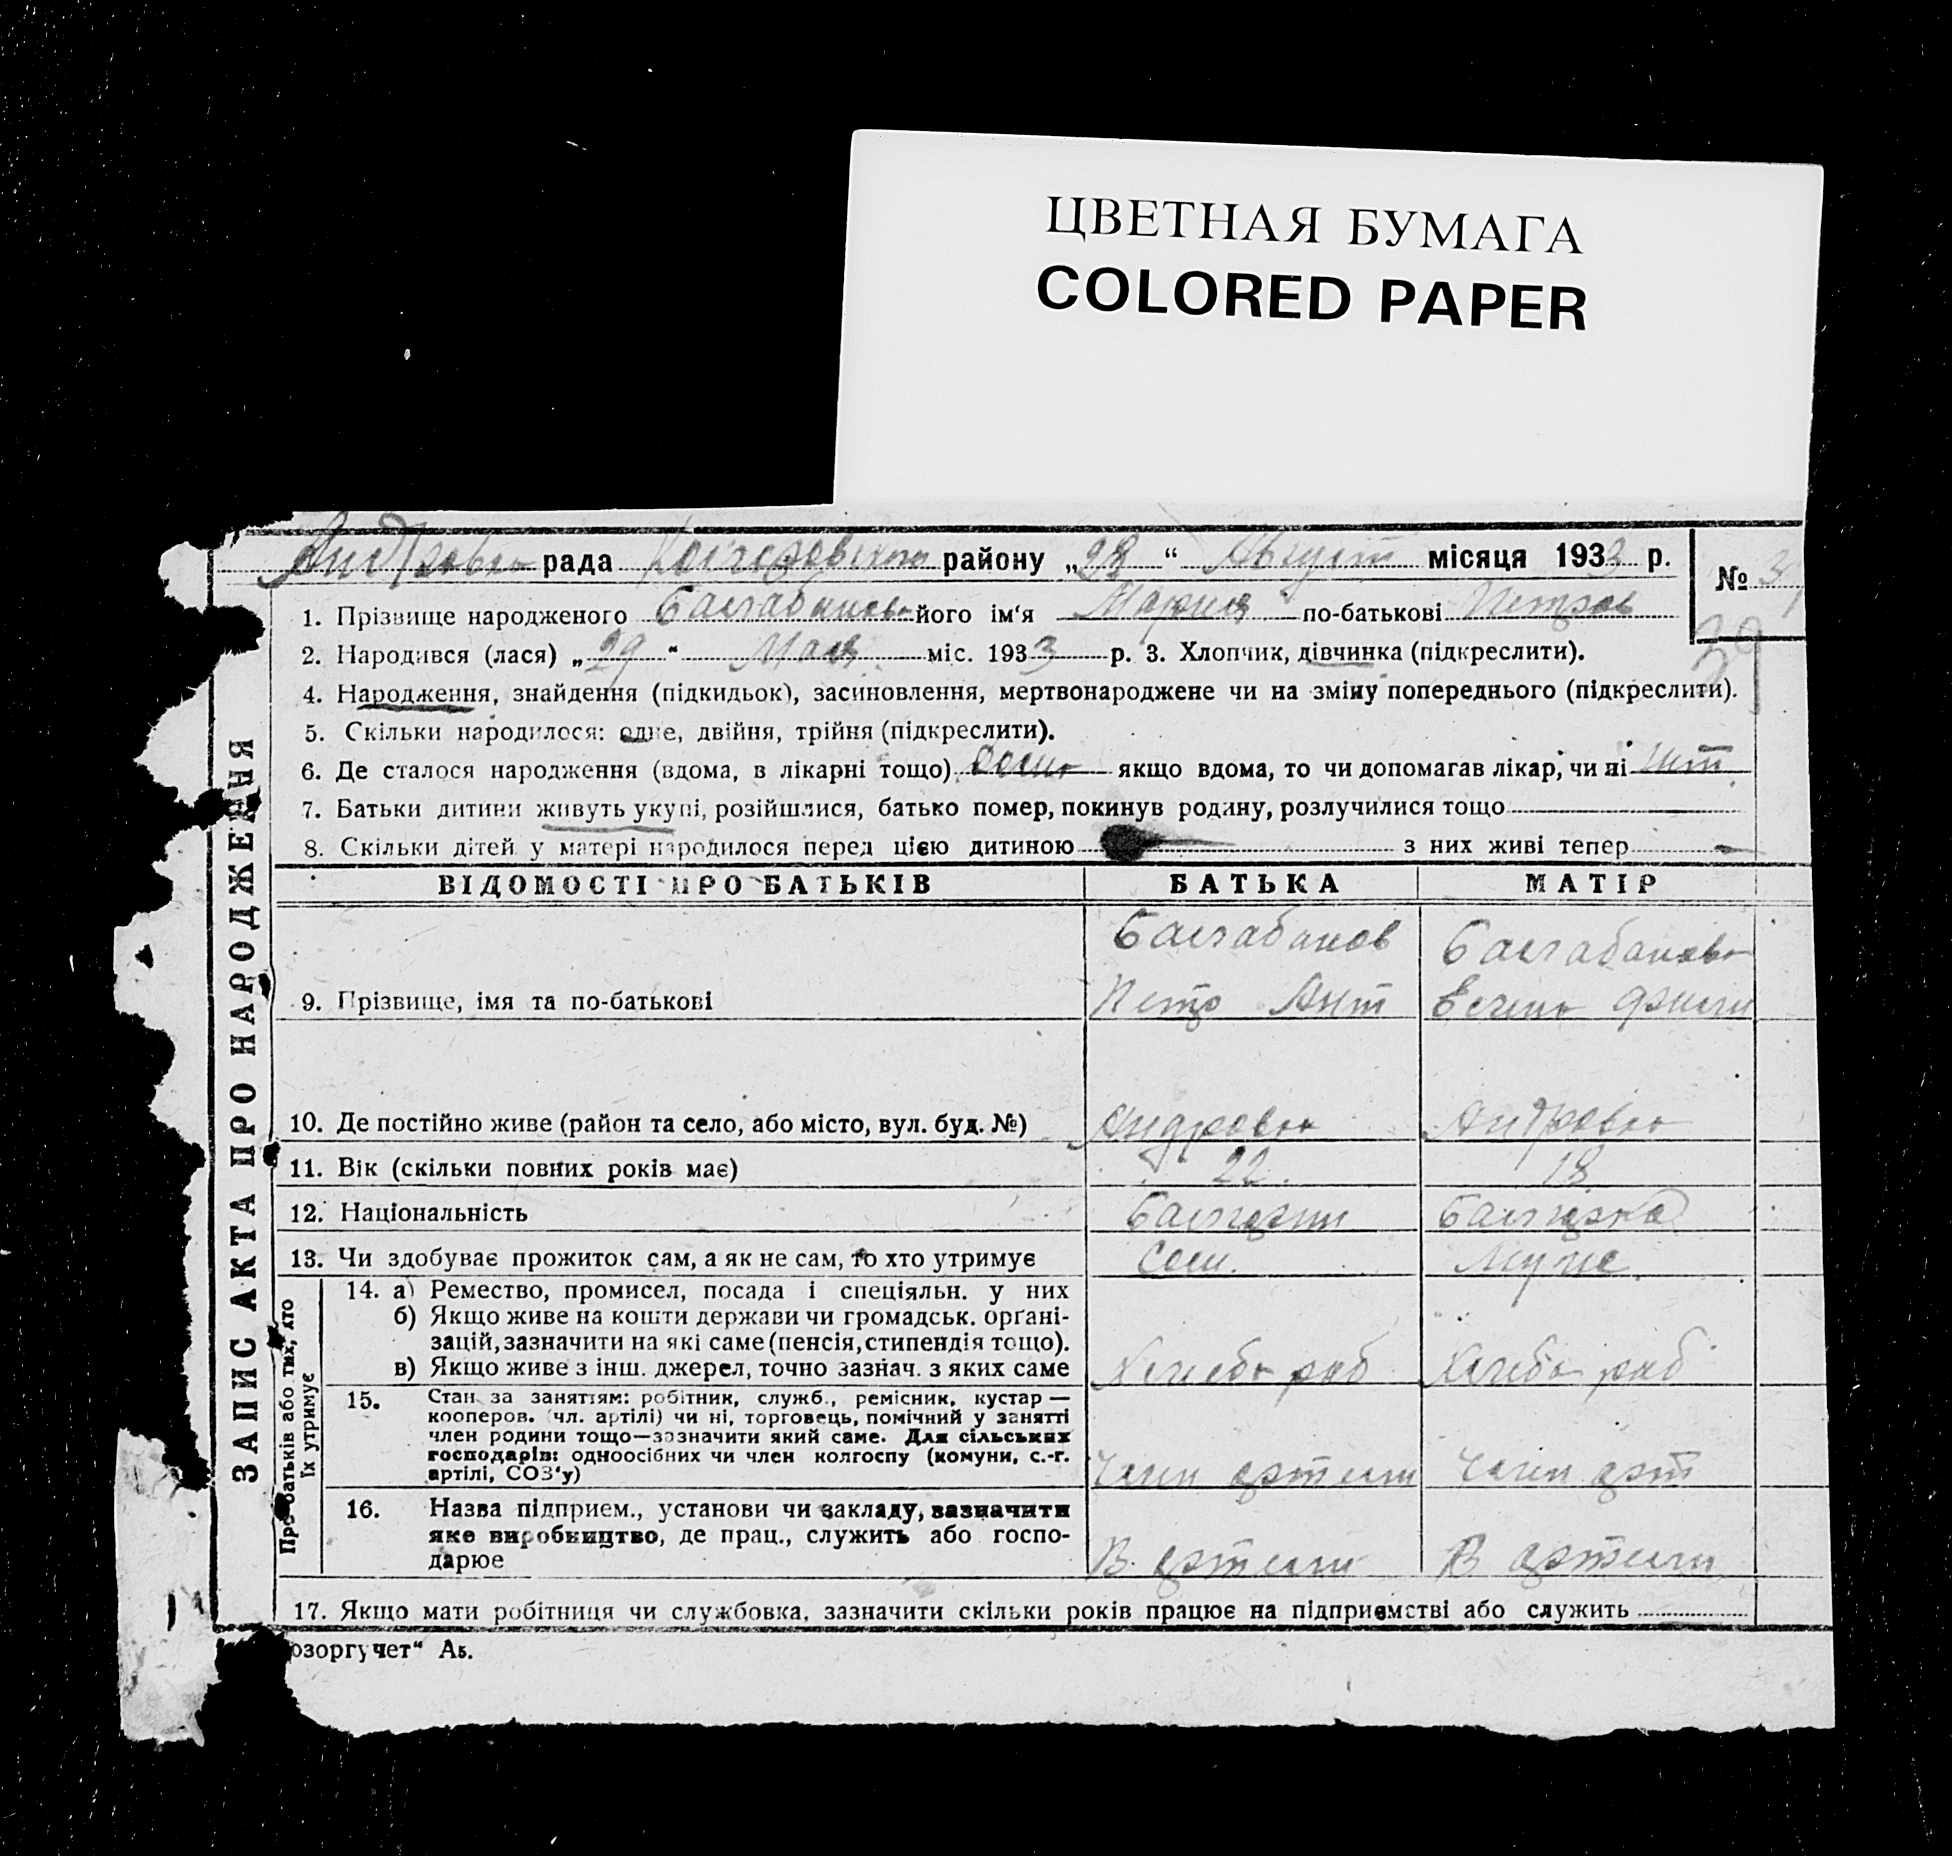 ЦВЕТНАЯ БУМАГА
COLORED PAPER
рада района району „28“ Август місяця 1933 р. № 31
39
1. Прізвище народженого Балабанова його ім‘я Мария по-батькові Петров
2. Народився (лася) „29“ Мая міс. 1933 р. 3. Хлопчик, дівчинка (підкреслити).
4. Народження, знайдення (підкидьок), засиновлення, мертвонароджене чи на зміну попереднього (підкреслити).
5. Скільки народилося: одне, двійня, трійня (підкреслити).
6. Де сталося народження (вдома, в лікарні тощо) дома якщо вдома, то чи допомагав лікар, чи ні нет
7. Батьки дитини живуть укупі, розійшлися, батько помер, покинув родину, розлучилися тощо
8. Скільки дітей у матері народилося перед цією дитиною з них живі тепер —
ЗАПИС АКТА ПРО НАРОДЖЕННЯ
ВІДОМОСТІ ПРО БАТЬКІВ БАТЬКА МАТІР
Балабанов Балабанова
9. Прізвище, імя та по-батькові Петр Ант Елена
10. Де постійно живе (район та село, або місто, вул. буд. №) Андровка Андровка
11. Вік (скільки повних років має) 22 18
12. Національність Балгарин Балгарка
13. Чи здобуває прожиток сам, а як не сам, то хто утримує Сам. Муже
Про батьків або тих, хто їх утримує
14. а) Ремество, промисел, посада і спеціяльн. у них
б) Якщо живе на кошти держави чи громадськ. орґані-
зацій, зазначити на які саме (пенсія, стипендія тощо).
в) Якщо живе з інш. джерел, точно зазнач. з яких саме Хлебо роб Хлебо роб
15. Стан за заняттям: робітник, служб., ремісник, кустар —
кооперов. (чл. артілі) чи ні, торговець, помічний у занятті
член родини тощо—зазначити який саме. Для сільських
господарів: одноосібних чи член колгоспу (комуни, с.-г.
артілі, СОЗ'у) Член артели Член арт
16. Назва підприєм., установи чи закладу, зазначити
яке виробництво, де прац., служить або госпо-
дарює В артели В артели
17. Якщо мати робітниця чи службовка, зазначити скільки років працює на підприємстві або служить
озоргучет“ А5.